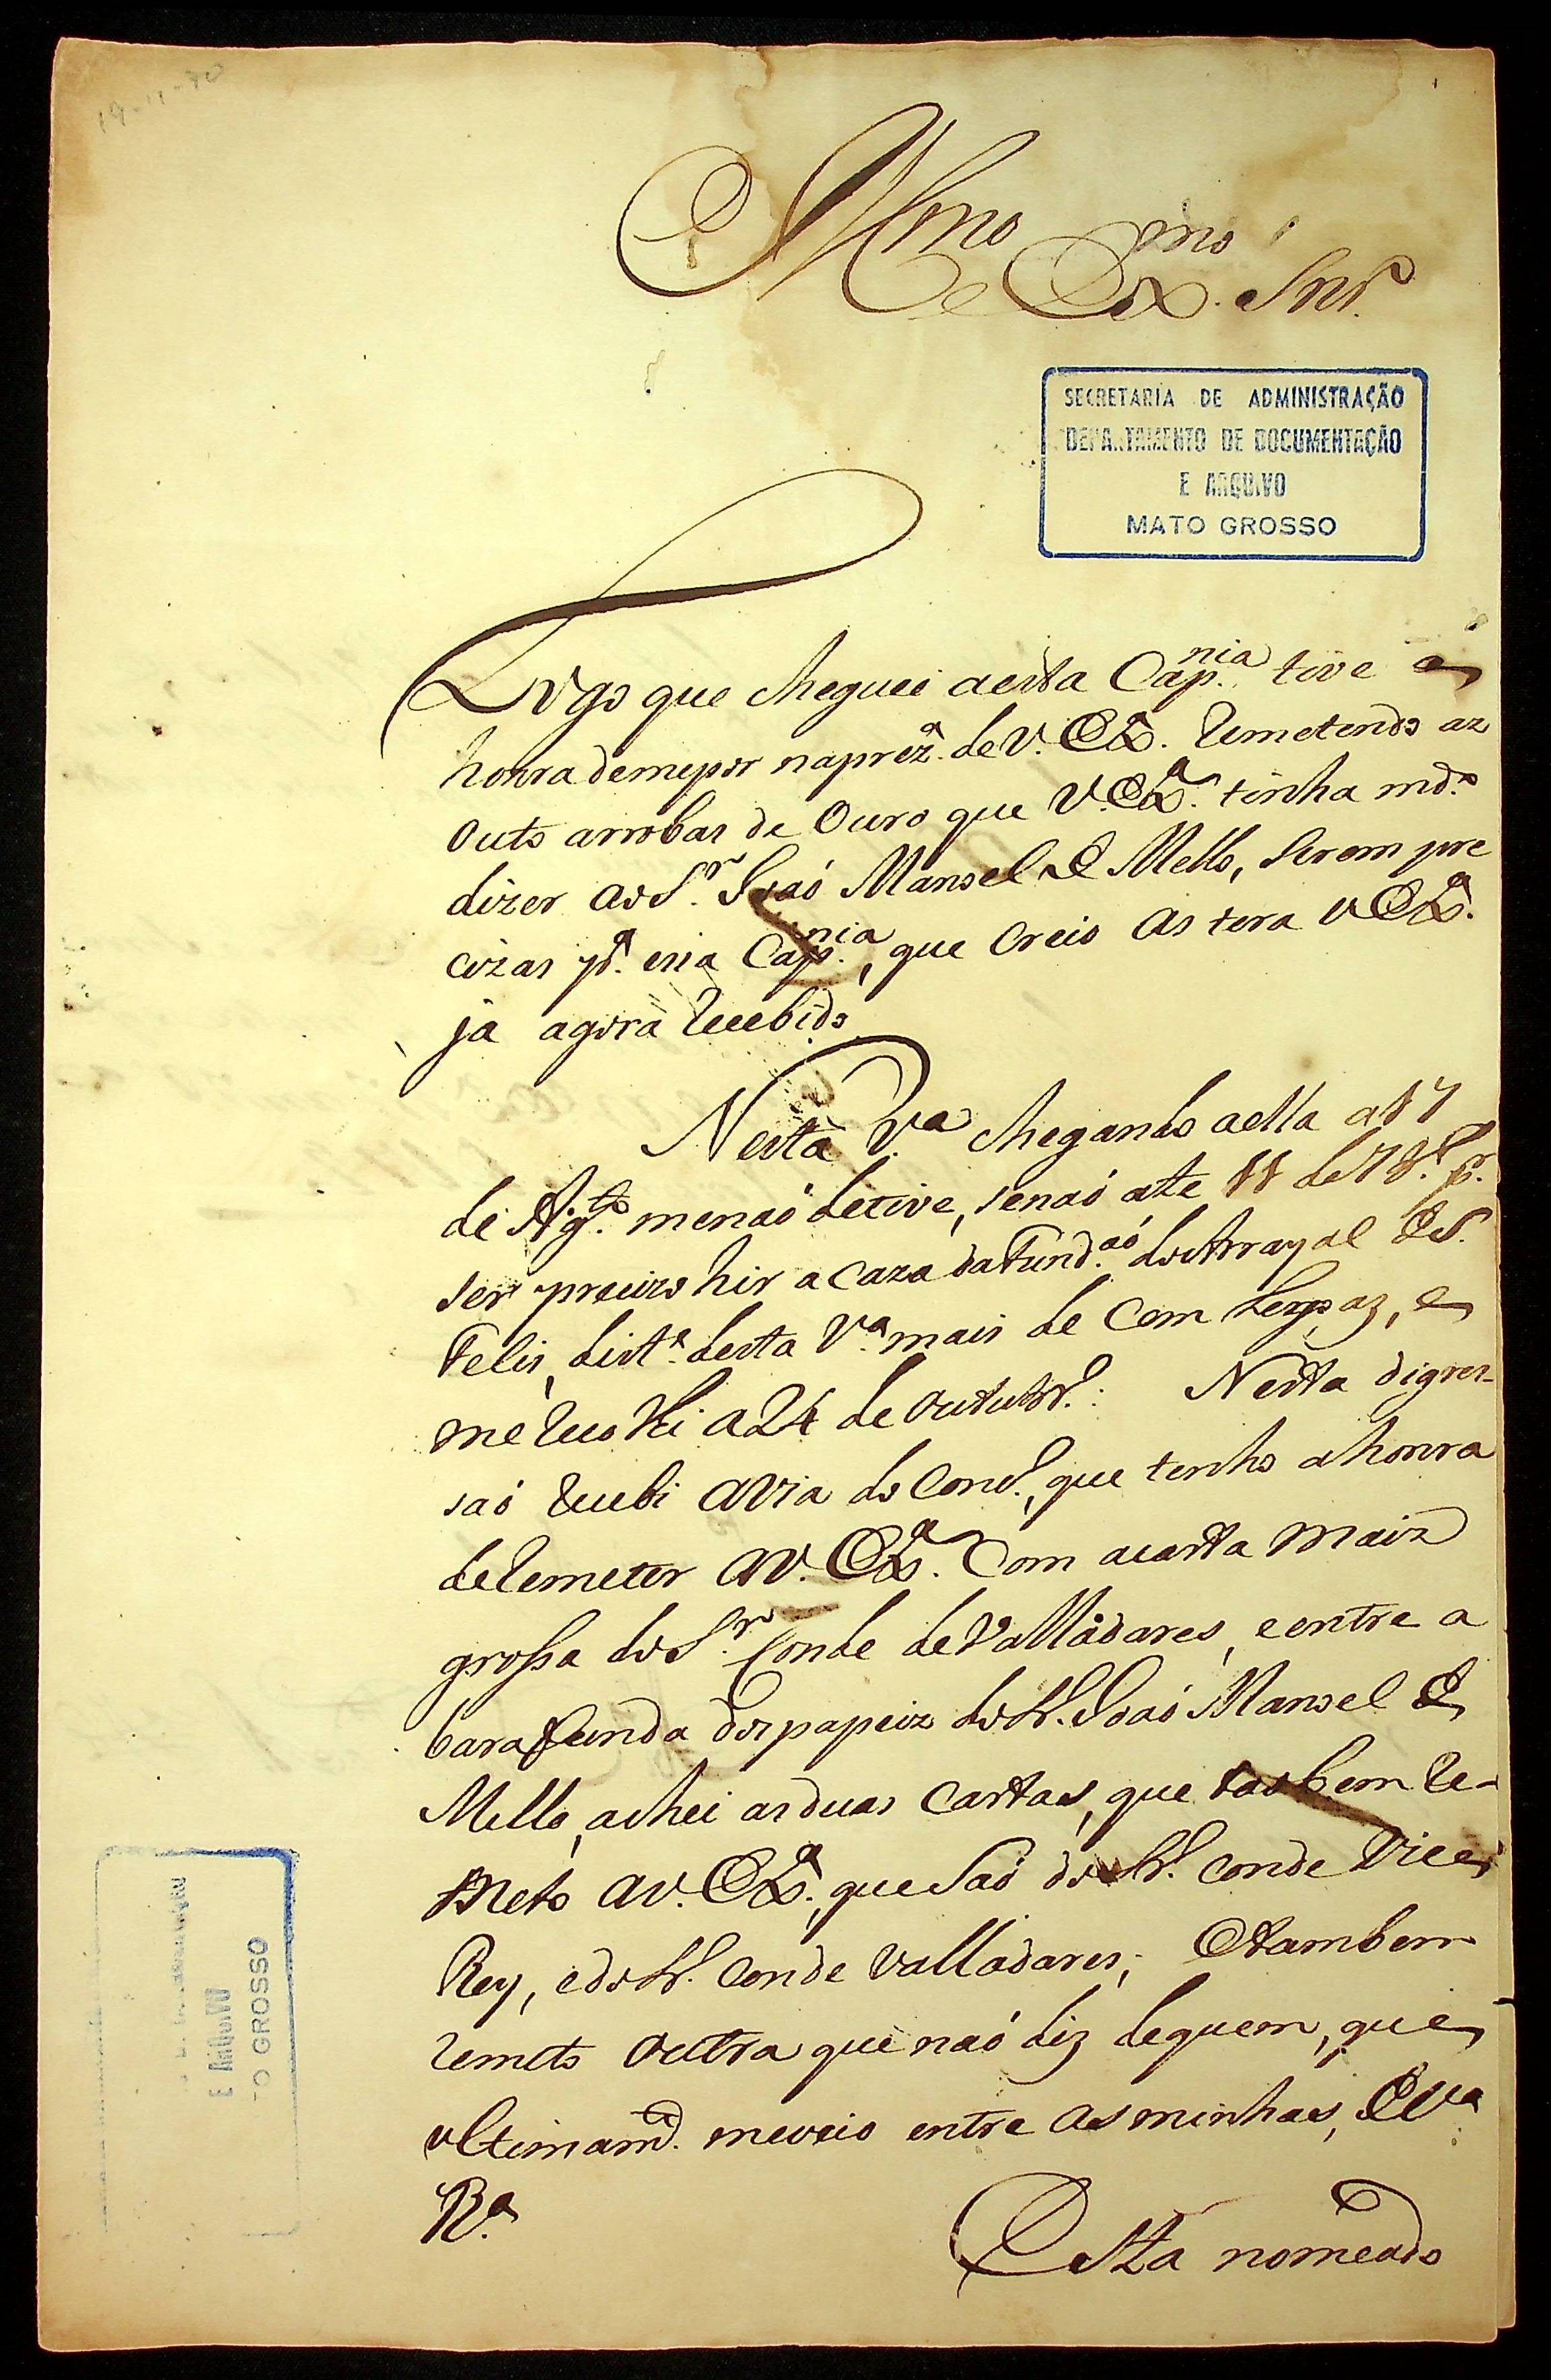 Illmo e Exmo Snr.
SECRETARIA DE ADMINISTRAÇÃO
DEPARTAMENTO DE DOCUMENTAÇÃO
E ARQUIVO
MATO GROSSO
Logo que cheguei aesta Cap.nia tive a
honra demepor naprez.a de V. Ex.a Remetendo az
outo arrobas de Ouro que V. Ex.a tinha md.o
dizer ao S.r Joaó Manoel de Mello, serem pre
cizas p.a esia Cap.nia, que creio as tera V Ex.a
já agora Recebido
Nesta V.a chegando aella a 17
de Ag.to menaó detive, senaó ate 11 de 7br.o p.r
ser precizo hir a caza da Fund.aó do Arrayal de S.
Felis, dist.e desta V.a mais de Cem legoaz, e
me Recolhi a 24 de outubr.o: Nesta digres-
saó Recebi a via do Cond.e, que tenho ahonra
deRemeter aV. Ex.a Com acarta maiz
grossa do S.r Conde deValladares, eentre a
barafunda dospapeiz do Sr. Joaó Manoel de
Mello, achei asduas Cartas, que taobem Re-
meto aV. Ex.a, que Saó do Sr. Conde Vice
Rey, edo Sr. Conde Valladares; Etambem
Remeto outra que naó diz dequem, que
ultimam.te meveio entre asminhas, de V.a
R.a
Está nomeado
E ARQUIVO
TO GROSSO